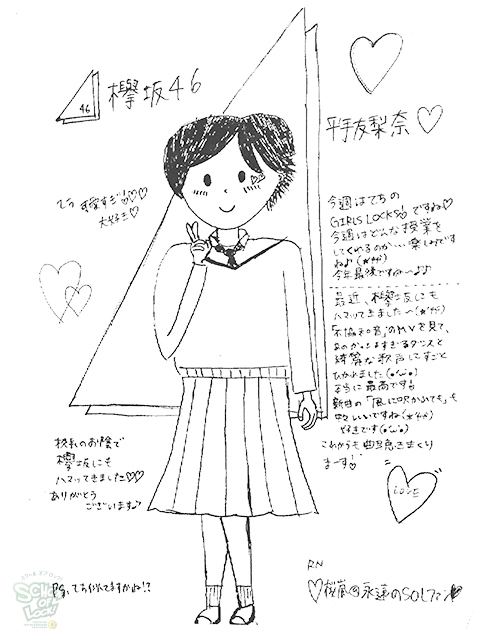 46
欅坂46
平手友梨奈♡
てち 可愛すぎ!♡♡
大好き♡
今週はてちの
GIRLS LOCKS!ですね♡
今週はどんな授業を
してくれるのか…楽しみです
ねょ
今年最後ですね〜♪♪
最近、欅坂にも
ハマってきました〜
「不協和音」のMVを見て、
あのかっこよすぎるダンスと
綺麗な歌声にすごく
ひかれました(●'ω'●)
本当に最高です!
新曲の「風に吹かれても」も
いいですね
好きです(●'ω'●)
これからも曲聴きまくり
まーす!
校長のお陰で
欅坂にも
ハマってきました♡♡
ありがとう
ございます♪
LOVE
P.S. てち似てますかね!?
RN
♡桜嵐@永遠のSOLファン♥
SCHOOL OF LOCK!